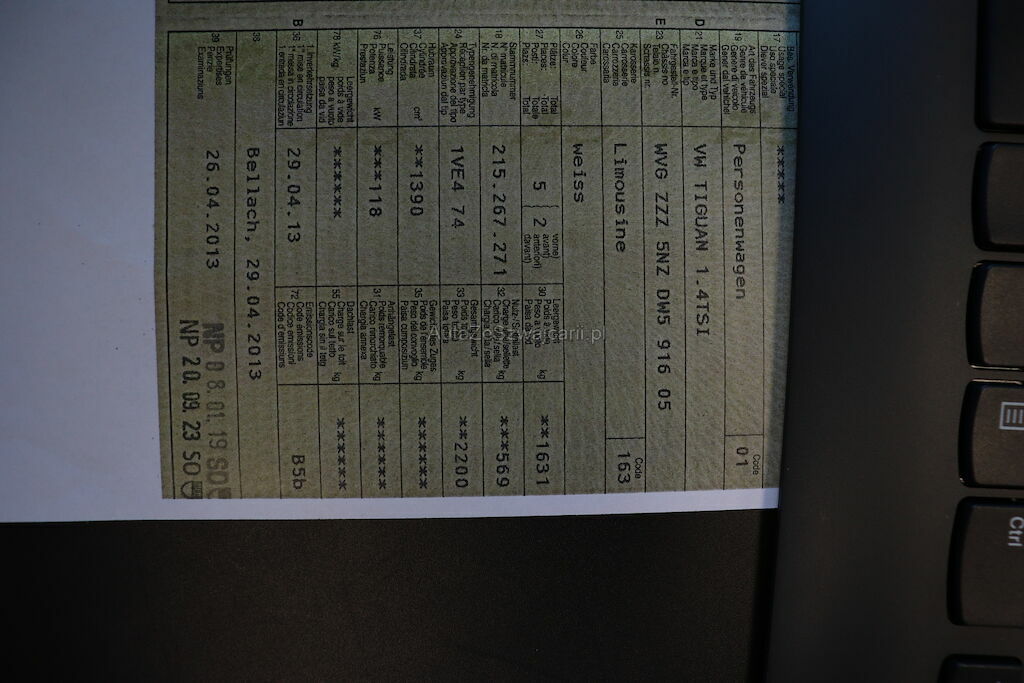 17 Bes. Verwendung
Usage spécial
Uso speciale
Diever spezial
*****
19 Art des Fahrzeugs
Genre de véhicule
Genere di veicolo
Gener dal vehichel
Personenwagen
Code
01
D 21 Marke und Typ
Marque et type
Marca e tipo
Marca e tip
VW TIGUAN 1.4TSI
E 23 Fahrgestell-Nr.
Châssis no
Telaio n.
Schassis nr.
WVG ZZZ 5NZ DW5 916 05
25 Karosserie
Carrosserie
Carrozzeria
Carossaria
Limousine
Code
163
26 Farbe
Couleur
Colore
Colur
weiss
27 Plätze: Total
Places: Total
Posti: Totale
Plazs: Total
5
2
vorne)
avant)
anteriori)
davant)
30 Leergewicht
Poids à vide
Peso a vuoto
Paisa da vid
kg
**1631
18 Stammnummer
N° matricule
N. di matricola
Nr. da matricla
215.267.271
32 Nutz-/Sattellast
kg
***569
24 Typengenehmigung
Réception par type
Approvazione del tipo
Approvaziun dal tip
1VE4 74
33 Gesamtgewicht
Poids total
Peso totale
Paisa totala
kg
**2200
37 Hubraum
Cylindrée
Cilindrata
Cilindrada
cm³
**1390
35 Gewicht des Zuges
Poids de l'ensemble
Peso del convoglio
Paisa cumposiziun
kg
******
76 Leistung
Puissance
Potenza
Prestaziun
kW
***118
31 Anhängelast
Poids remorquable
Carico rimorchiato
Chargia annexa
kg
******
78 kW/kg
Leergewicht
poids à vide
peso a vuoto
paisa da vid
******
55 Dachlast
Charge sur le toit
Carico sul tetto
Chargia sin il tetg
kg
******
B 36 1. Inverkehrsetzung
1re mise en circulation
1a messa in circolazione
1. entrada en circulaziun
29.04.13
72 Emissionscode
Code émissions
Codice emissioni
Code d'emissiuns
B5b
38
Bellach, 29.04.2013
39 Prüfungen
Expertises
Esami
Examinaziuns
26.04.2013
NP 08.01.19 SO
NP 20.09.23 SO
Ctrl